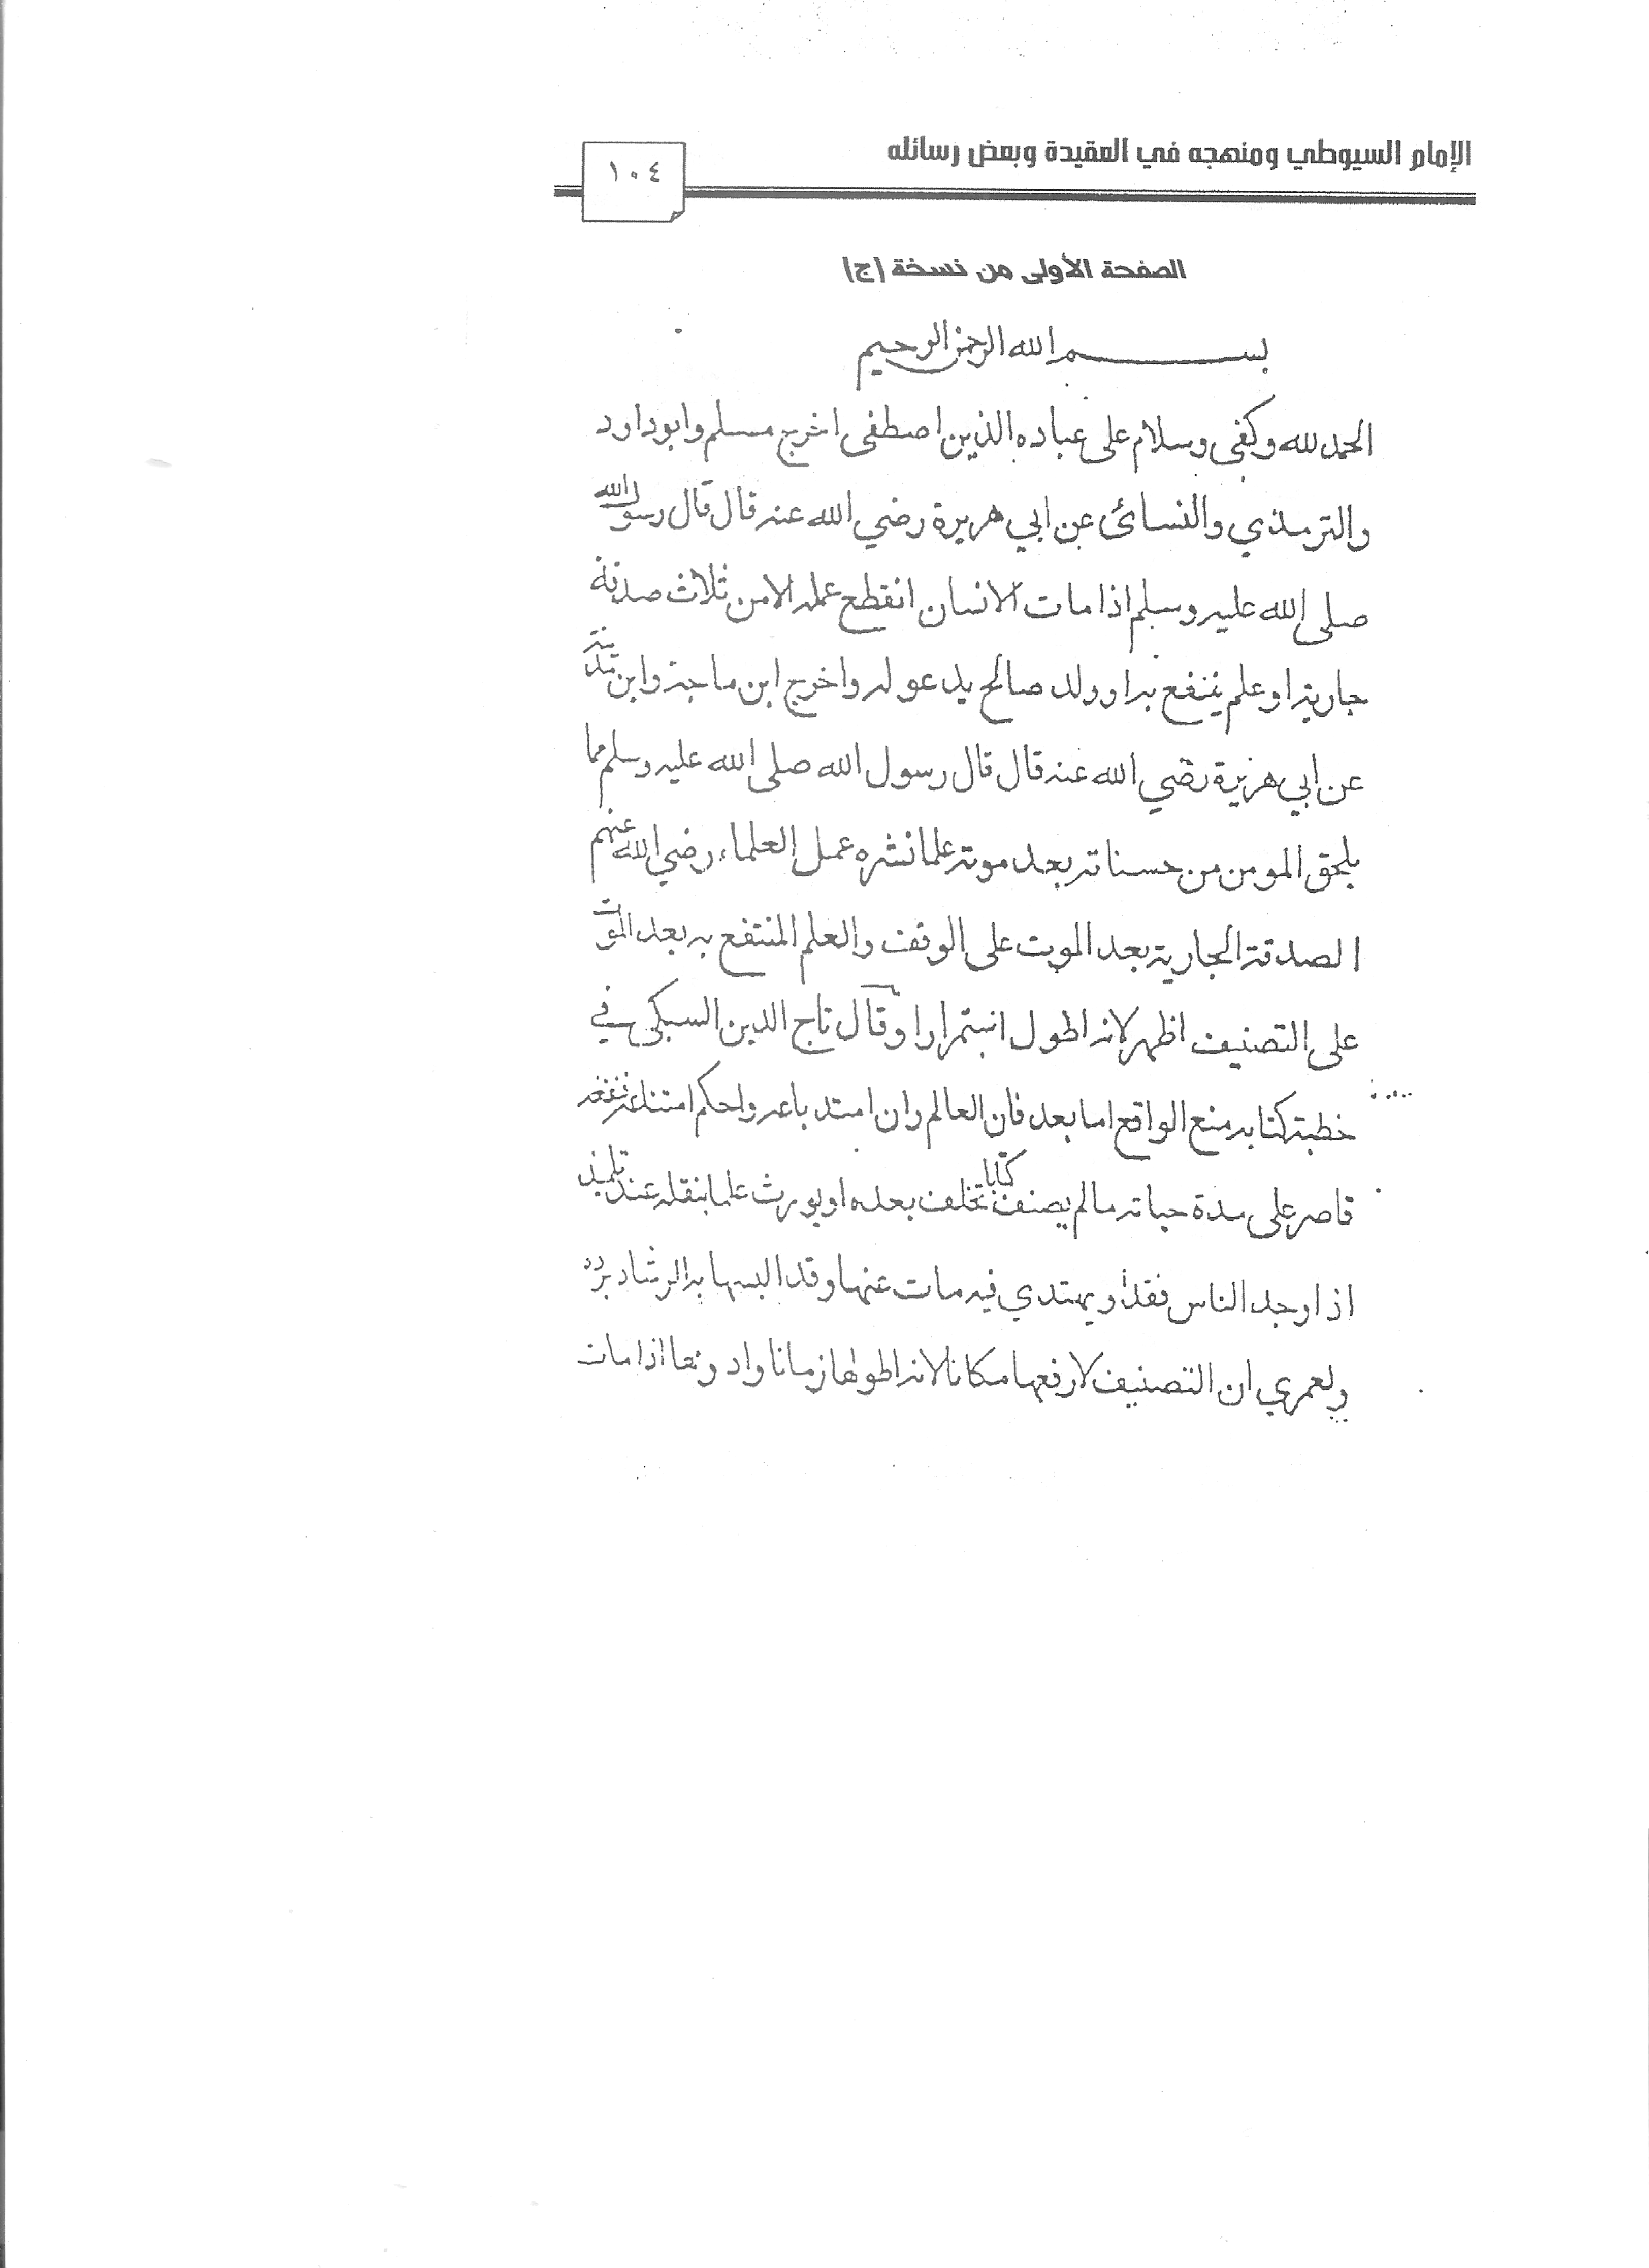 الإمام السيوطي ومنهجه في العقيدة وبعض رسائله
١٠٤
الصفحة الأولى من نسخة (ج)
بسم الله الرحمن الرحيم
الحمد لله وكفى وسلام على عباده الذين اصطفى اخرج مسلم وابو داود
والترمذي والنسائى عن ابي هريرة رضي الله عنه قال قال رسول الله
صلى الله عليه وسلم اذا مات الانسان انقطع عمله الا من ثلاث صدقة
جارية او علم ينتفع به او ولد صالح يدعو له واخرج ابن ماجة وابن
عن ابي هريرة رضي الله عنه قال قال رسول الله صلى الله عليه وسلم مما
يلحق المومن من حسناته بعد موته علما نشره عمل العلماء رضي الله عنهم
الصدقة الجارية بعد الموت على الوقف والعلم المنتفع به بعد الموت
على التصنيف اظهر لانه اطول استمرارا وقال تاج الدين السبكي في
خطبة كتابه منع الواقع اما بعد فان العالم وان امتد باعه واحكم
قاصر على مدة حياته مالم يصنف كتابا تخلف بعده او يورث علما ينقله عنه تلميذ
اذا وجد الناس فقدا ويهتدي فيه مات عنها وقد البسها به الرشاد برد
ولعمري ان التصنيف لارفعها مكانا لانه اطولها زمانا واد ونعا اذا مات